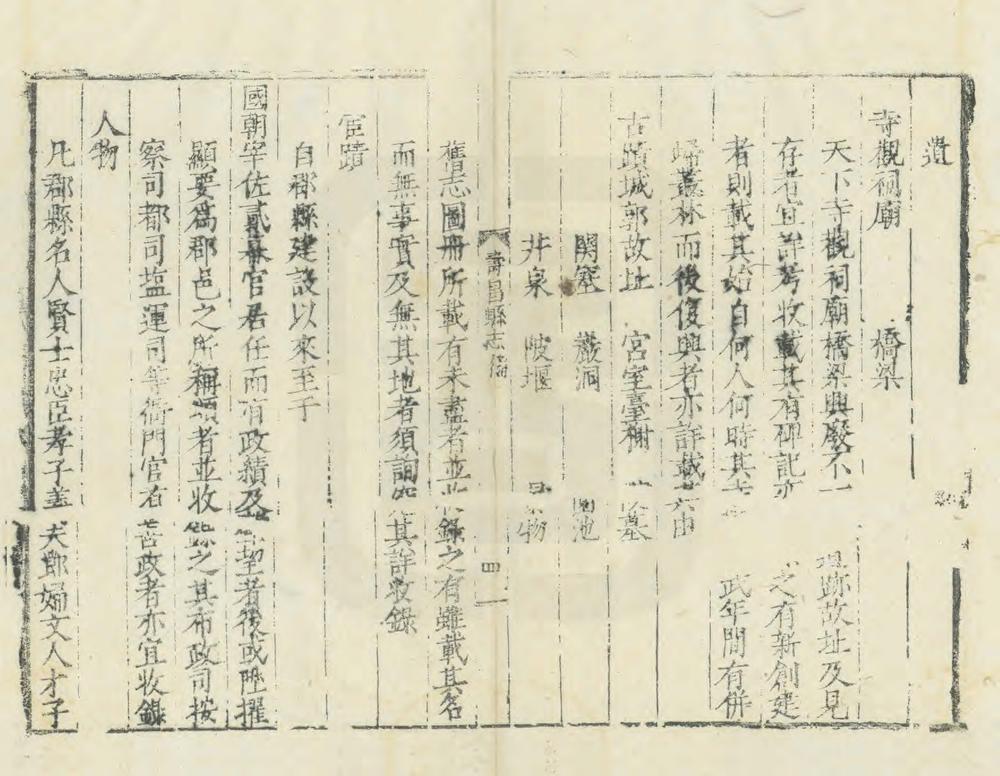 遺
寺觀祠廟 橋梁
天下寺觀祠廟橋梁興廢不一 跡故址及見
存者宜詳考收載其有碑記亦 之有新創建
者則載其始自何人何時其 武年間有併
歸叢林而後復興者亦詳載其由
古蹟城郭故址 宮室臺榭 墓
關塞 巖洞 池
井泉 陂堰 物
壽昌縣志 四
舊志圖冊所載有未盡者並收錄之有雖載其名
而無事實及無其地者須詢究其詳收錄
宦蹟
自郡縣建設以來至于
國朝宰佐貳幕官居任而有政績及 者後或陞擢
顯要爲郡邑之所稱頌者並收錄之其布政司按
察司都司塩運司等衙門官有善政者亦宜收錄
人物
凡郡縣名人賢士忠臣孝子義夫節婦文人才子